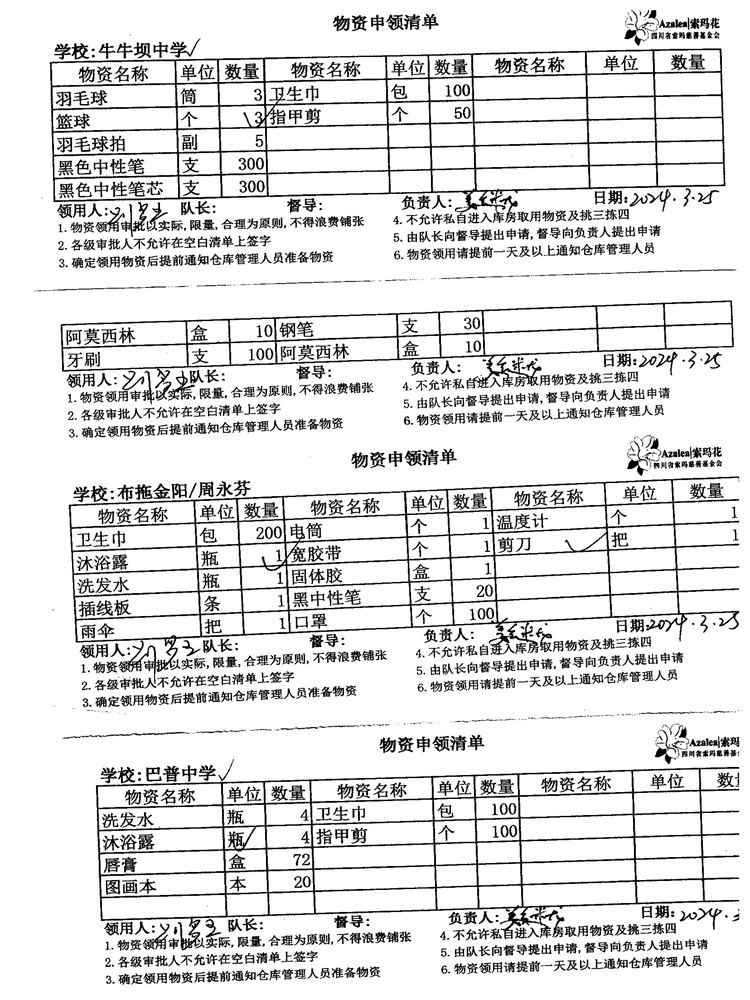 物资申领清单
Azalea|索玛花
四川省索玛慈善基金会
学校:牛牛坝中学√
物资名称 单位 数量 物资名称 单位 数量 物资名称 单位 数量
羽毛球 筒 3 卫生巾 包 100
篮球 个 3 指甲剪 个 50
羽毛球拍 副 5
黑色中性笔 支 300
黑色中性笔芯 支 300
领用人: 队长: 督导: 负责人: 日期:2024.3.25
1.物资领用审批以实际,限量,合理为原则,不得浪费铺张 4.不允许私自进入库房取用物资及挑三拣四
2.各级审批人不允许在空白清单上签字 5.由队长向督导提出申请,督导向负责人提出申请
3.确定领用物资后提前通知仓库管理人员准备物资 6.物资领用请提前一天及以上通知仓库管理人员
阿莫西林 盒 10 钢笔 支 30
牙刷 支 100 阿莫西林 盒 10
领用人: 队长: 督导: 负责人: 日期:2024.3.25
1.物资领用审批以实际,限量,合理为原则,不得浪费铺张 4.不允许私自进入库房取用物资及挑三拣四
2.各级审批人不允许在空白清单上签字 5.由队长向督导提出申请,督导向负责人提出申请
3.确定领用物资后提前通知仓库管理人员准备物资 6.物资领用请提前一天及以上通知仓库管理人员
物资申领清单
Azalea|索玛花
四川省索玛慈善基金会
学校:布拖金阳/周永芬
物资名称 单位 数量 物资名称 单位 数量 物资名称 单位 数量
卫生巾 包 200 电筒 个 1 温度计 个 1
沐浴露 瓶 1 宽胶带 个 1 剪刀 √ 把 1
洗发水 瓶 1 固体胶 盒 1
插线板 条 1 黑中性笔 支 20
雨伞 把 1 口罩 个 100
领用人: 队长: 督导: 负责人: 日期:2024.3.25
1.物资领用审批以实际,限量,合理为原则,不得浪费铺张 4.不允许私自进入库房取用物资及挑三拣四
2.各级审批人不允许在空白清单上签字 5.由队长向督导提出申请,督导向负责人提出申请
3.确定领用物资后提前通知仓库管理人员准备物资 6.物资领用请提前一天及以上通知仓库管理人员
物资申领清单
Azalea|索玛
四川省索玛慈善基
学校:巴普中学√
物资名称 单位 数量 物资名称 单位 数量 物资名称 单位 数
洗发水 瓶 4 卫生巾 包 100
沐浴露 瓶 4 指甲剪 个 100
唇膏 盒 72
图画本 本 20
领用人: 队长: 督导: 负责人: 日期:2024.
1.物资领用审批以实际,限量,合理为原则,不得浪费铺张 4.不允许私自进入库房取用物资及挑三拣四
2.各级审批人不允许在空白清单上签字 5.由队长向督导提出申请,督导向负责人提出申请
3.确定领用物资后提前通知仓库管理人员准备物资 6.物资领用请提前一天及以上通知仓库管理人员